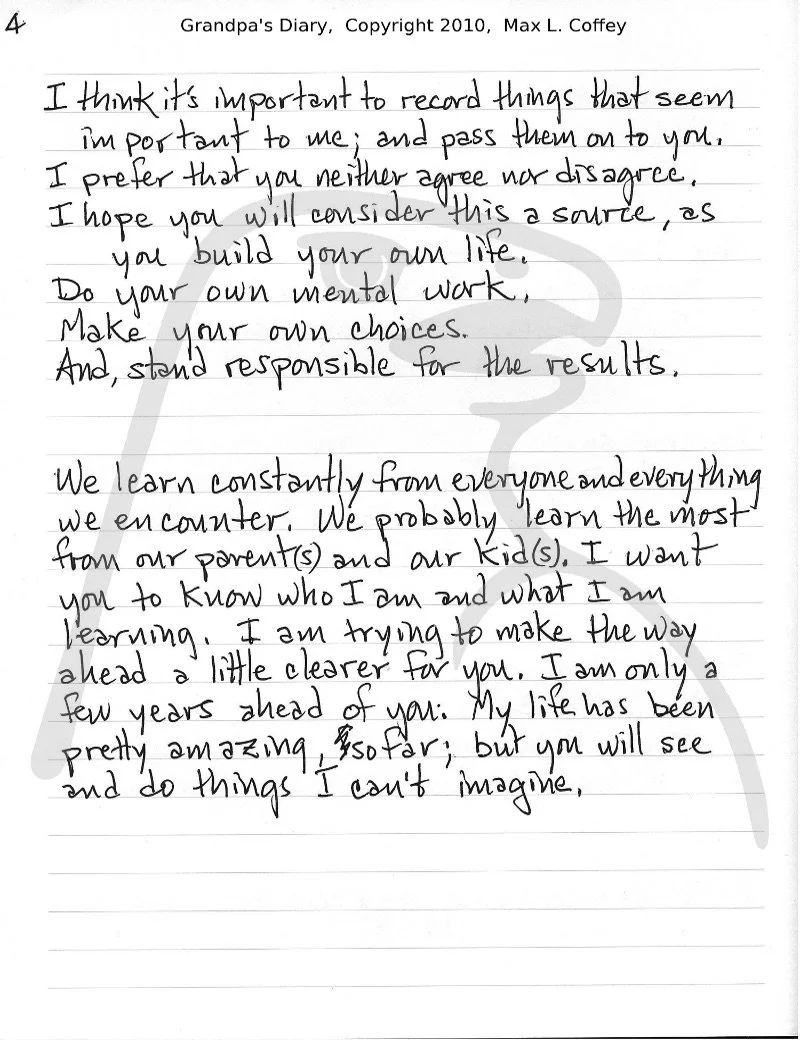 4
Grandpa's Diary, Copyright 2010, Max L. Coffey
I think it's important to record things that seem
important to me; and pass them on to you.
I prefer that you neither agree nor disagree.
I hope you will consider this a source, as
you build your own life.
Do your own mental work.
Make your own choices.
And, stand responsible for the results.
We learn constantly from everyone and everything
we encounter. We probably learn the most
from our parent(s) and our kid(s). I want
you to know who I am and what I am
learning. I am trying to make the way
ahead a little clearer for you. I am only a
few years ahead of you. My life has been
pretty amazing, so far; but you will see
and do things I can't imagine.